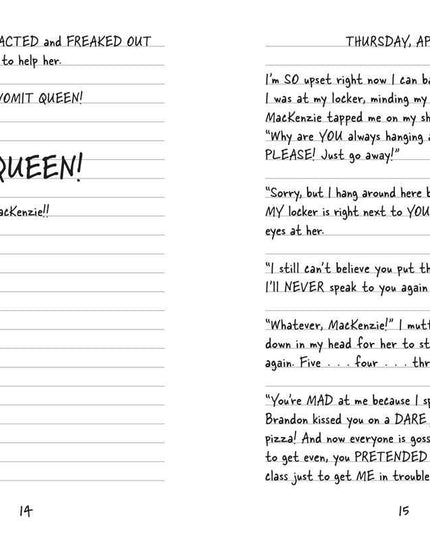 ACTED and FREAKED OUT
to help her.
VOMIT QUEEN!
QUEEN!
MacKenzie!!
14
THURSDAY, AP
I'm SO upset right now I can ba
I was at my locker, minding my
MacKenzie tapped me on my sh
"Why are YOU always hanging a
PLEASE! Just go away!"
"Sorry, but I hang around here b
MY locker is right next to YOU
eyes at her.
"I still can't believe you put th
I'll NEVER speak to you again
"Whatever, MacKenzie!" I mutt
down in my head for her to st
again. Five . . . four . . . thr
"You're MAD at me because I sp
Brandon kissed you on a DARE
pizza! And now everyone is goss
to get even, you PRETENDED
class just to get ME in trouble
15